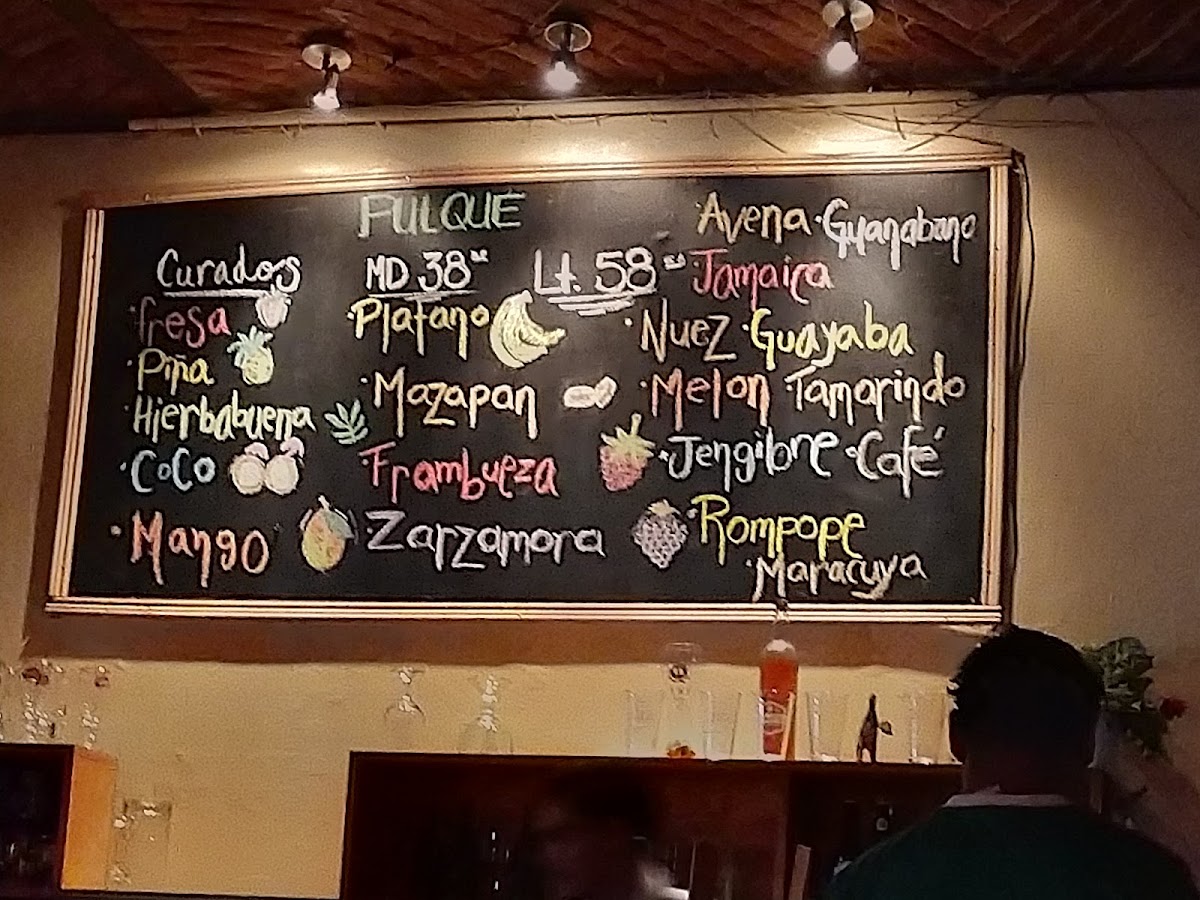 PULQUE
Curados
MD 38
Lt. 58
fresa
Piña
Hierbabuena
Coco
Mango
Platano
Mazapan
Frambueza
Zarzamora
Avena · Guanabana
Jamaica
· Nuez · Guayaba
· Melon Tamarindo
· Jengibre · Café
· Rompope
· Maracuya